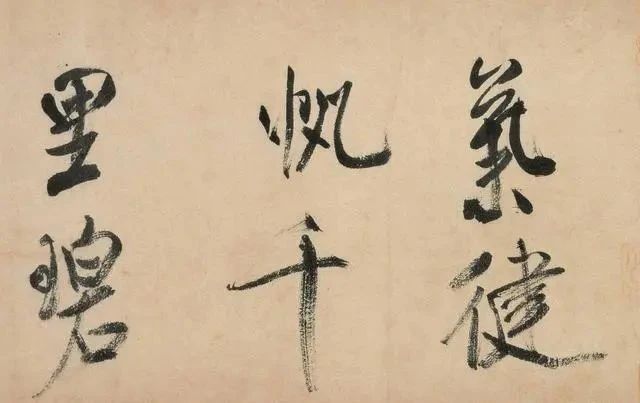 氣健
帆千
里碧